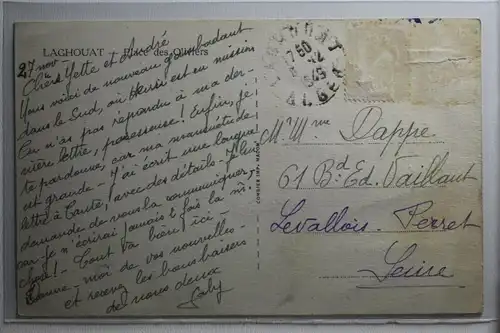 LAGHOUAT - Place des Oliviers
27 nov
Chers Yette et André
Vous voici de nouveau gambadant
dans le Sud, où est en mission
Tu n'as pas répondu à ma der-
nière lettre, paresseuse! Enfin, je
te pardonne, car ma mansuétude
est grande - J'ai écrit une longue
lettre à Tante, avec des détails - Je lui
demande de vous la communiquer,
car je n'écrirai jamais 2 fois la m.
chose! - Tout va bien ici -
Donne-moi de vos nouvelles -
et recevez les bons baisers
de nous deux
Gaby
LAGHOUAT
17 50
ALGER
COMBIER IMP. MACON
M. Mme Dappe
61 Bd. Ed. Vaillant
Levallois-Perret
Seine